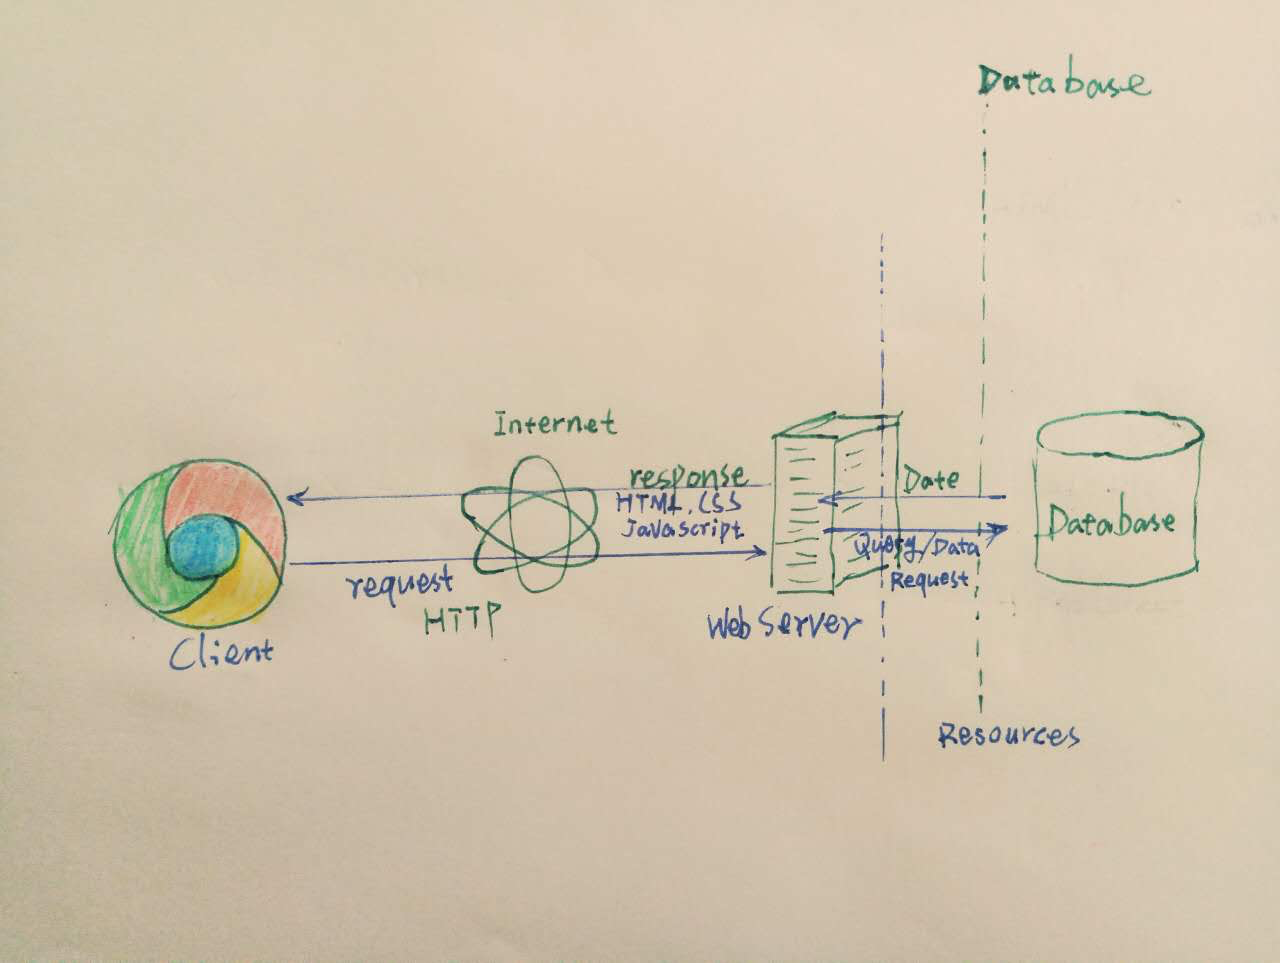 Database
Internet
response
HTML, CSS
Javascript
Date
Database
Query/Data
Request
request
HTTP
Web Server
Client
Resources